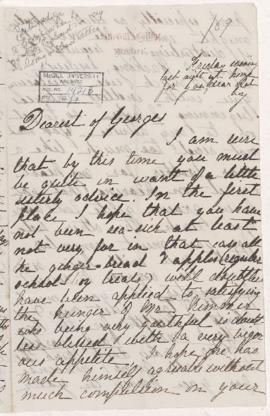 /89
Friday evening
last night at home
for
McGILL UNIVERSITY
ACC. NO.
Dearest of Georges
I am sure
that by this time you must
be quite in want of a little
sisterly advice. In the first
place I hope that you have
not been sea-sick at least
not very for in that case all
the ginger bread & apples (regular
school treats) will doubtless
have been applied to satisfying
the hunger of Mr.
who being very youthful is doubt
less blessed with a very vigor
ous appetite. I hope he has
made himself agreeable without
much compulsion on your